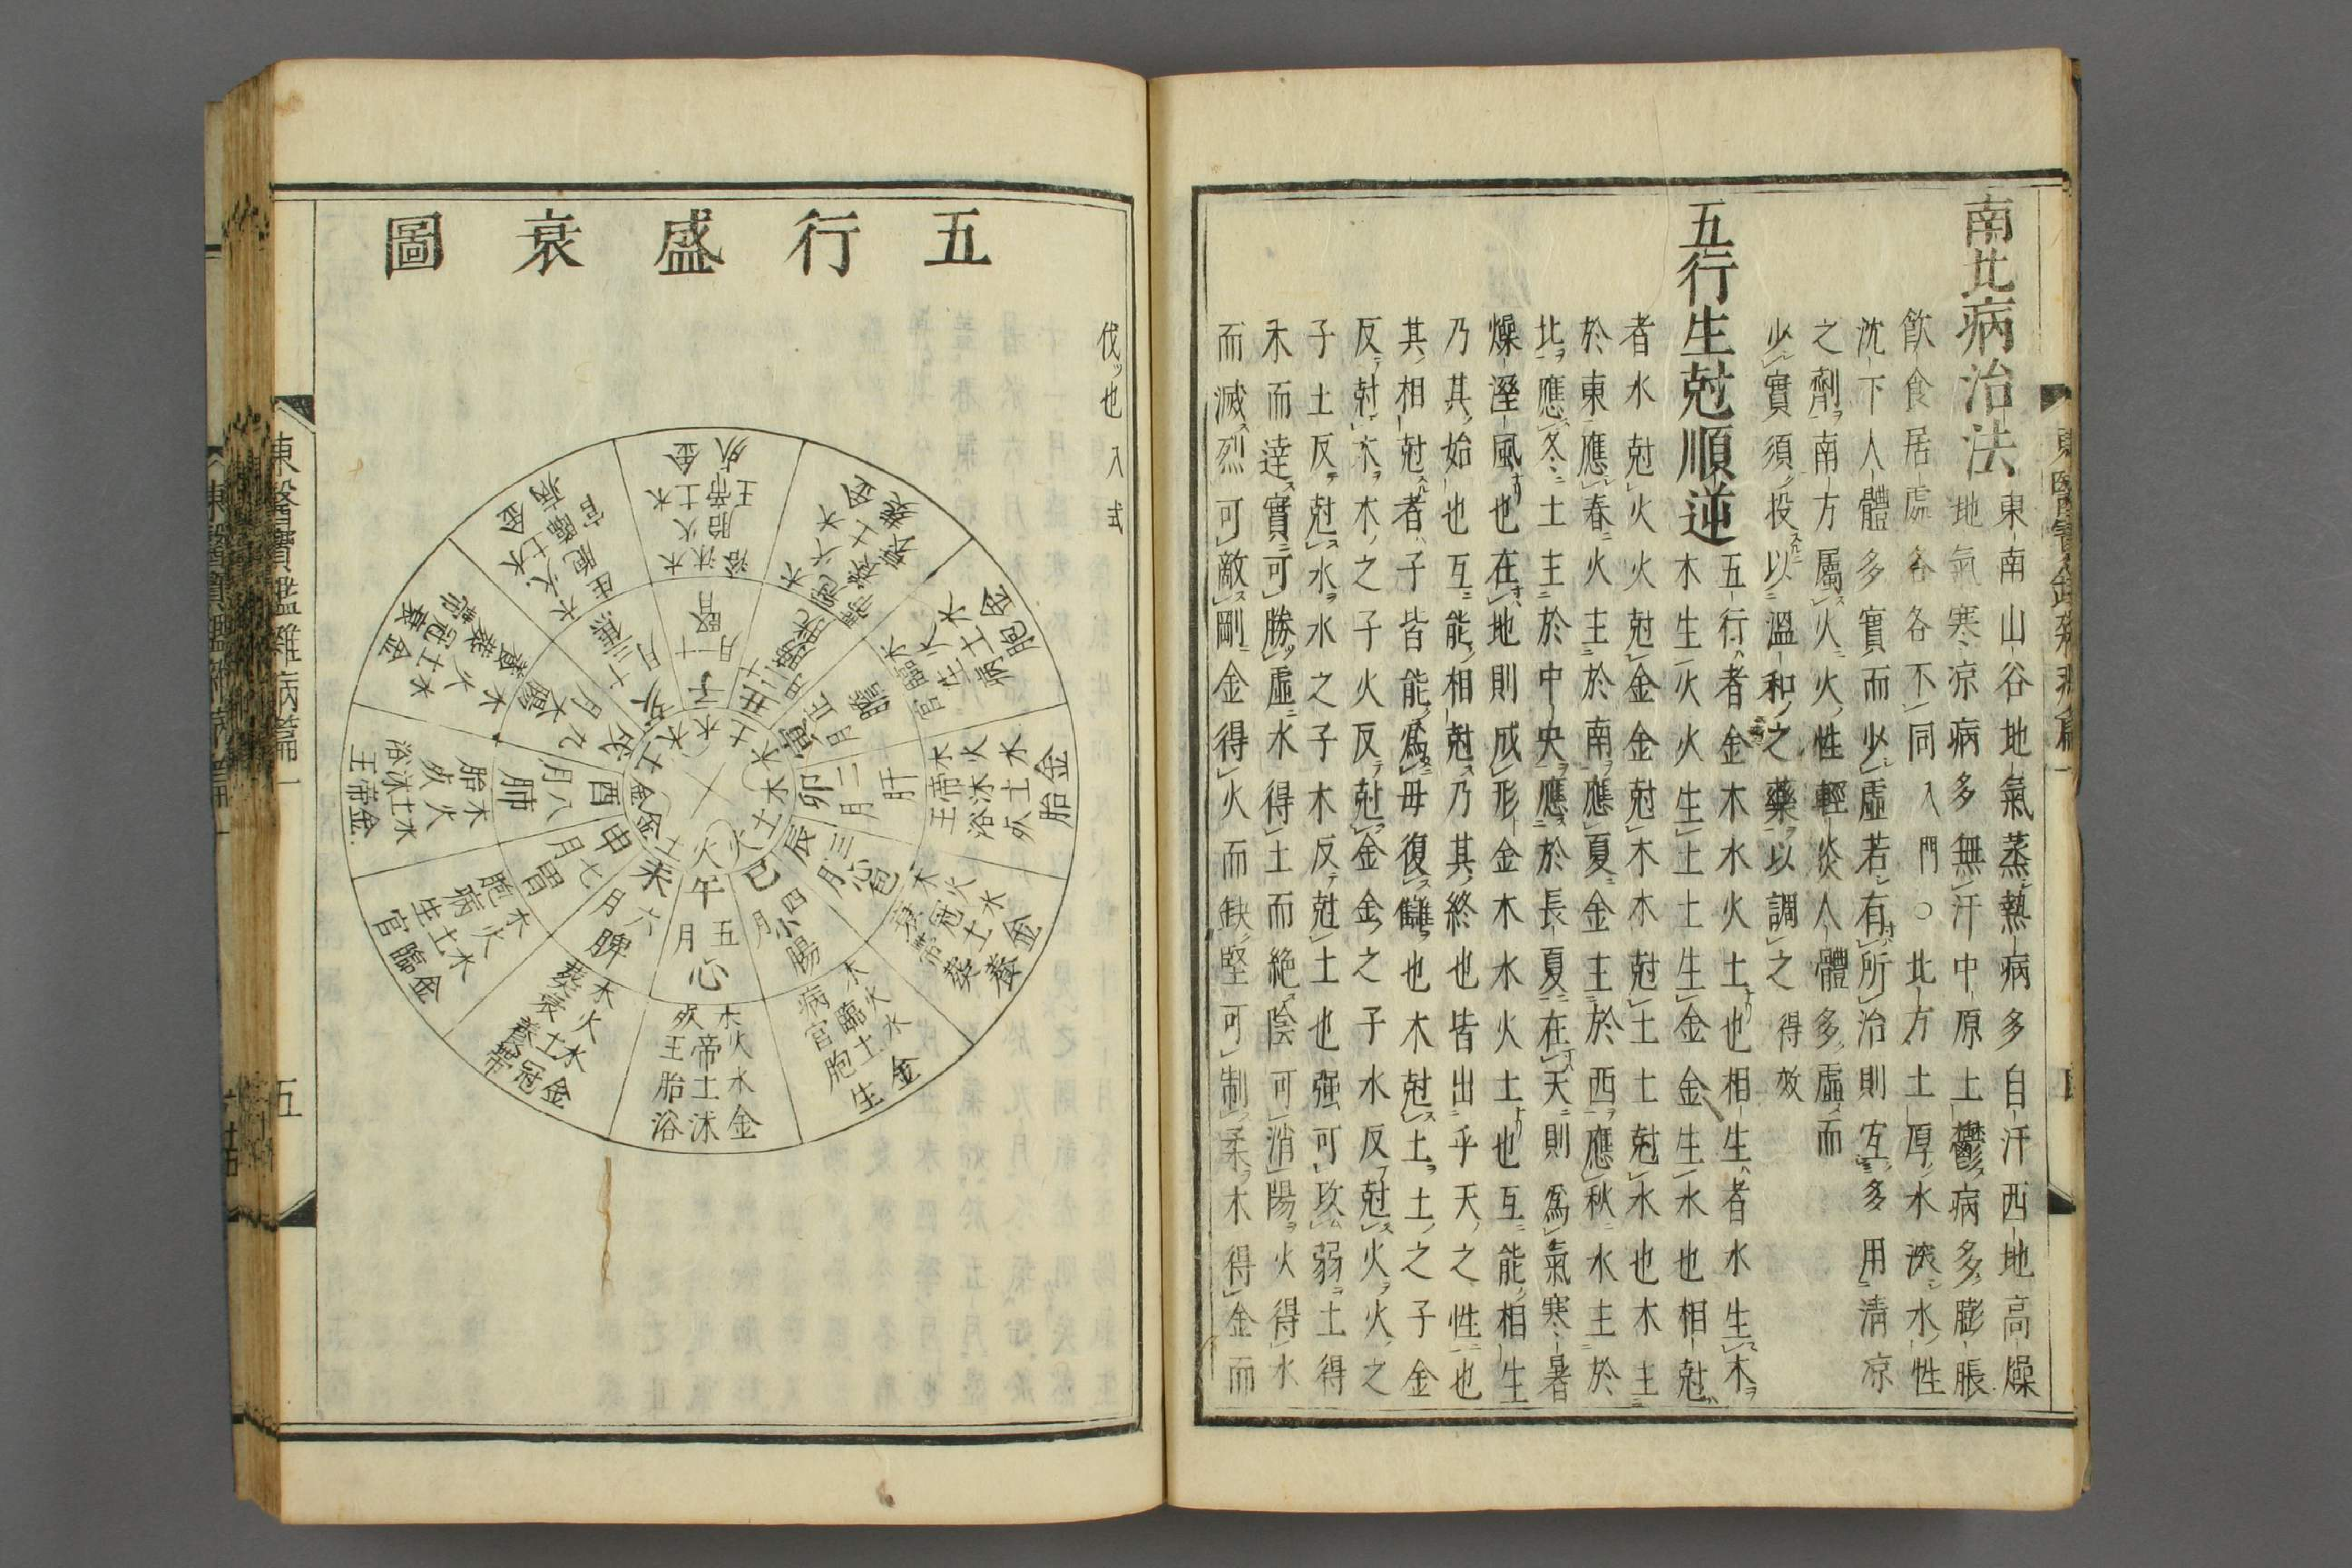 南北病治法
東南山谷地氣蒸熱病多自汗西地高燥
地氣寒凉病多無汗中原土鬱病多膨脹
飮食居處各各不同入門○北方土厚水深水性
沈下人體多實而少虛若有所治則宜多用淸凉
之劑南方屬火火性輕炎人體多虛而
少實須投以溫和之藥以調之得效
五行生尅順逆
五行者金木水火土也相生者水生木
木生火火生土土生金金生水也相尅
者水尅火火尅金金尅木木尅土土尅水也木主
於東應春火主於南應夏金主於西應秋水主於
北應冬土主於中央應於長夏在天則爲氣寒暑
燥溼風也在地則成形金木水火土也互能相生
乃其始也互能相尅乃其終也皆出乎天之性也
其相尅者子皆能爲母復讎也木尅土土之子金
反尅木木之子火反尅金金之子水反尅火火之
子土反尅水水之子木反尅土也强可攻弱土得
木而達實可勝虛水得土而絶陰可消陽火得水
而滅烈可敵剛金得火而缺堅可制柔木得金而
伐也入式
五行盛衰圖
子 十一月 腎
丑 十二月 膀胱
寅 正月 膽
卯 二月 肝
辰 三月 心包
巳 四月 小腸
午 五月 心
未 六月 脾
申 七月 胃
酉 八月 肺
戌 九月
亥 十月 三焦
木死 火帝王 水土胎 金沐浴
木病 火臨官 水土胞 金生
木衰 火冠帶 水土墓 金養
木帝王 火沐浴 水土死 金胎
木臨官 火生 水土病 金胞
木墓 火衰 水土養 金冠帶
木胞 火病 水土生 金臨官
木胎 火死 水土沐浴 金帝王
東醫寶鑑雜病篇一
五